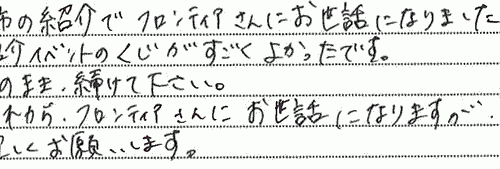 市の紹介でフロンティアさんにお世話になりました
介イベントのくじがすごくよかったです。
のまま、続けて下さい。
れから、フロンティアさんにお世話になりますので、
しくお願いします。